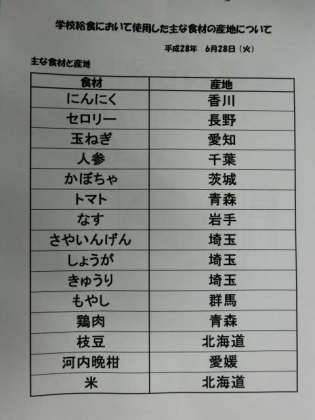 学校給食において使用した主な食材の産地について
平成28年 6月28日（火）
主な食材と産地
食材 産地
にんにく 香川
セロリー 長野
玉ねぎ 愛知
人参 千葉
かぼちゃ 茨城
トマト 青森
なす 岩手
さやいんげん 埼玉
しょうが 埼玉
きゅうり 埼玉
もやし 群馬
鶏肉 青森
枝豆 北海道
河内晩柑 愛媛
米 北海道